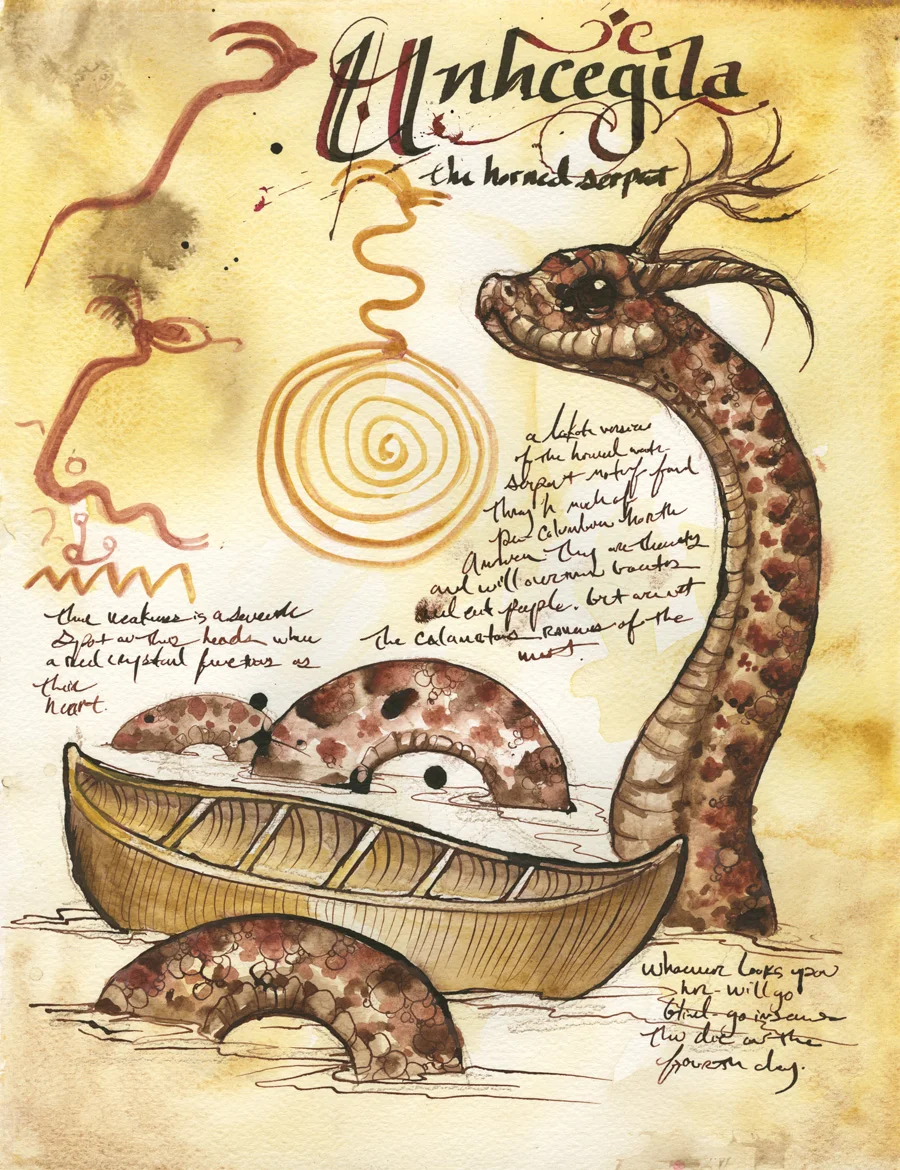 Unhcegila
the horned serpent
a lakota version
of the horned water
serpent motif found
through much of
Pre-Columbian North
America They are
and will overturn boats
and eat people. but are not
the calamatous of the
Their weakness is a seventh
spot on their heads when
a red crystall functions as
their
heart.
whoever looks upon
her- will go
blind- go insane
the die on the
fourth day.